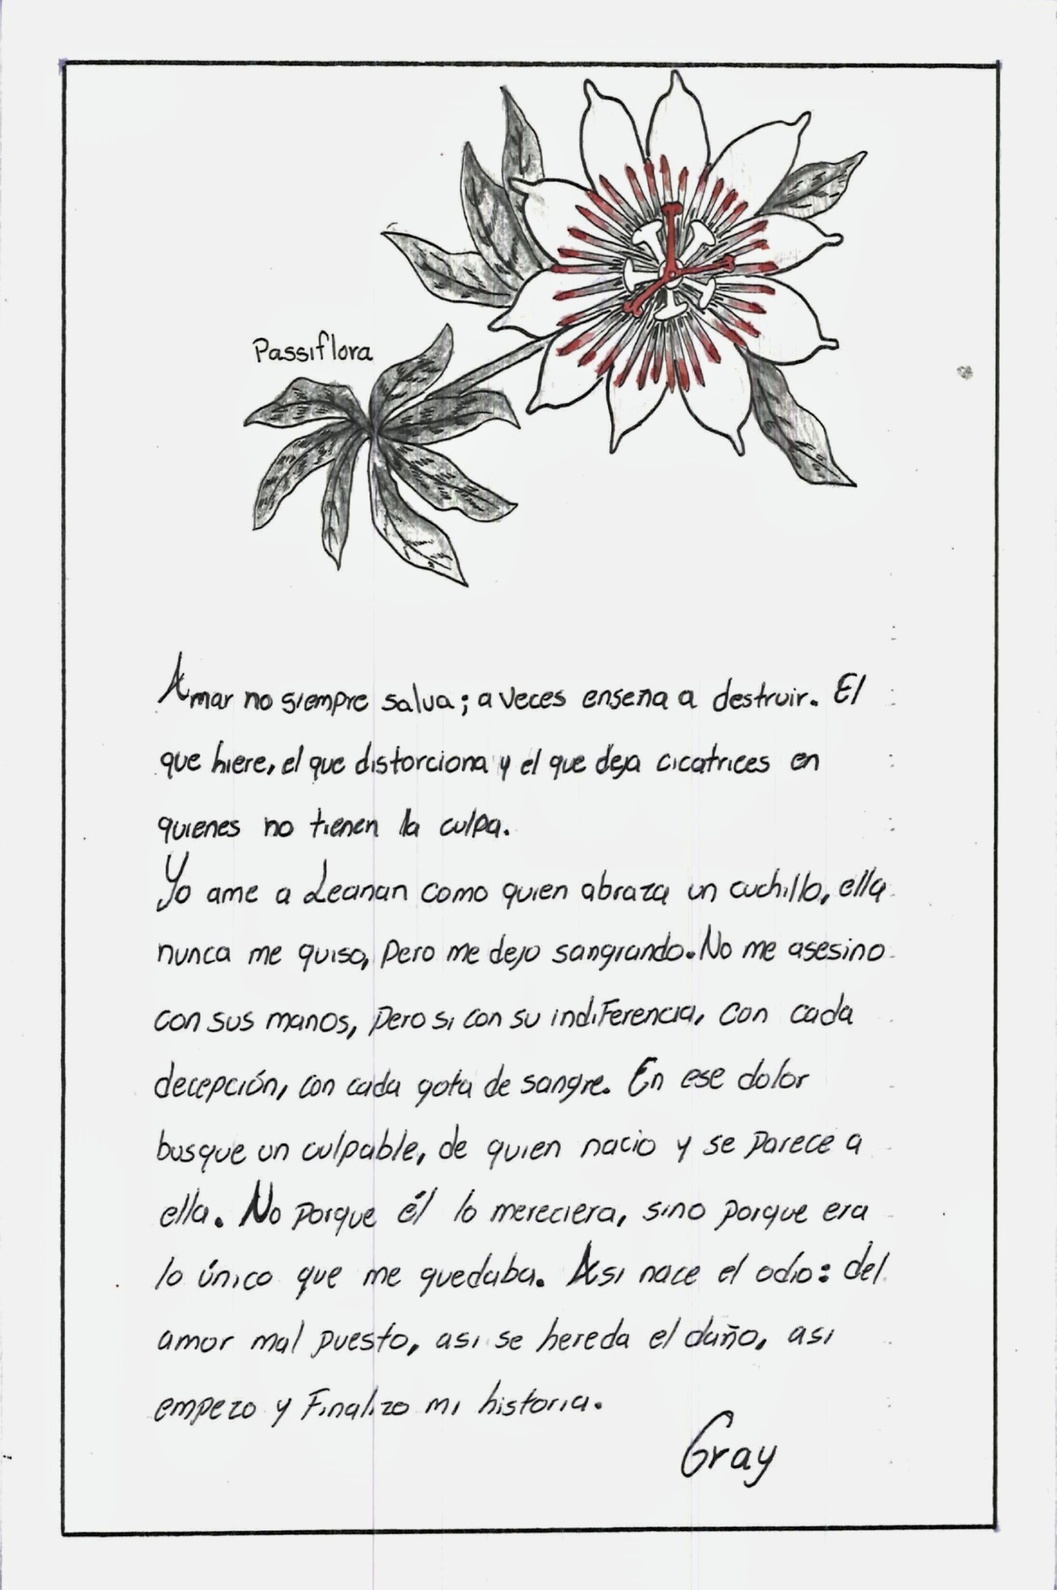 Passiflora
Amar no siempre salva; a veces enseña a destruir. El
que hiere, el que distorciona y el que deja cicatrices en
quienes no tienen la culpa.
Yo ame a Leanan como quien abraza un cuchillo, ella
nunca me quiso, pero me dejo sangrando. No me asesino
con sus manos, pero si con su indiferencia, con cada
decepción, con cada gota de sangre. En ese dolor
busque un culpable, de quien nacio y se parece a
ella. No porque él lo mereciera, sino porque era
lo único que me quedaba. Asi nace el odio: del
amor mal puesto, asi se hereda el daño, asi
empezo y finalizo mi historia.
Gray